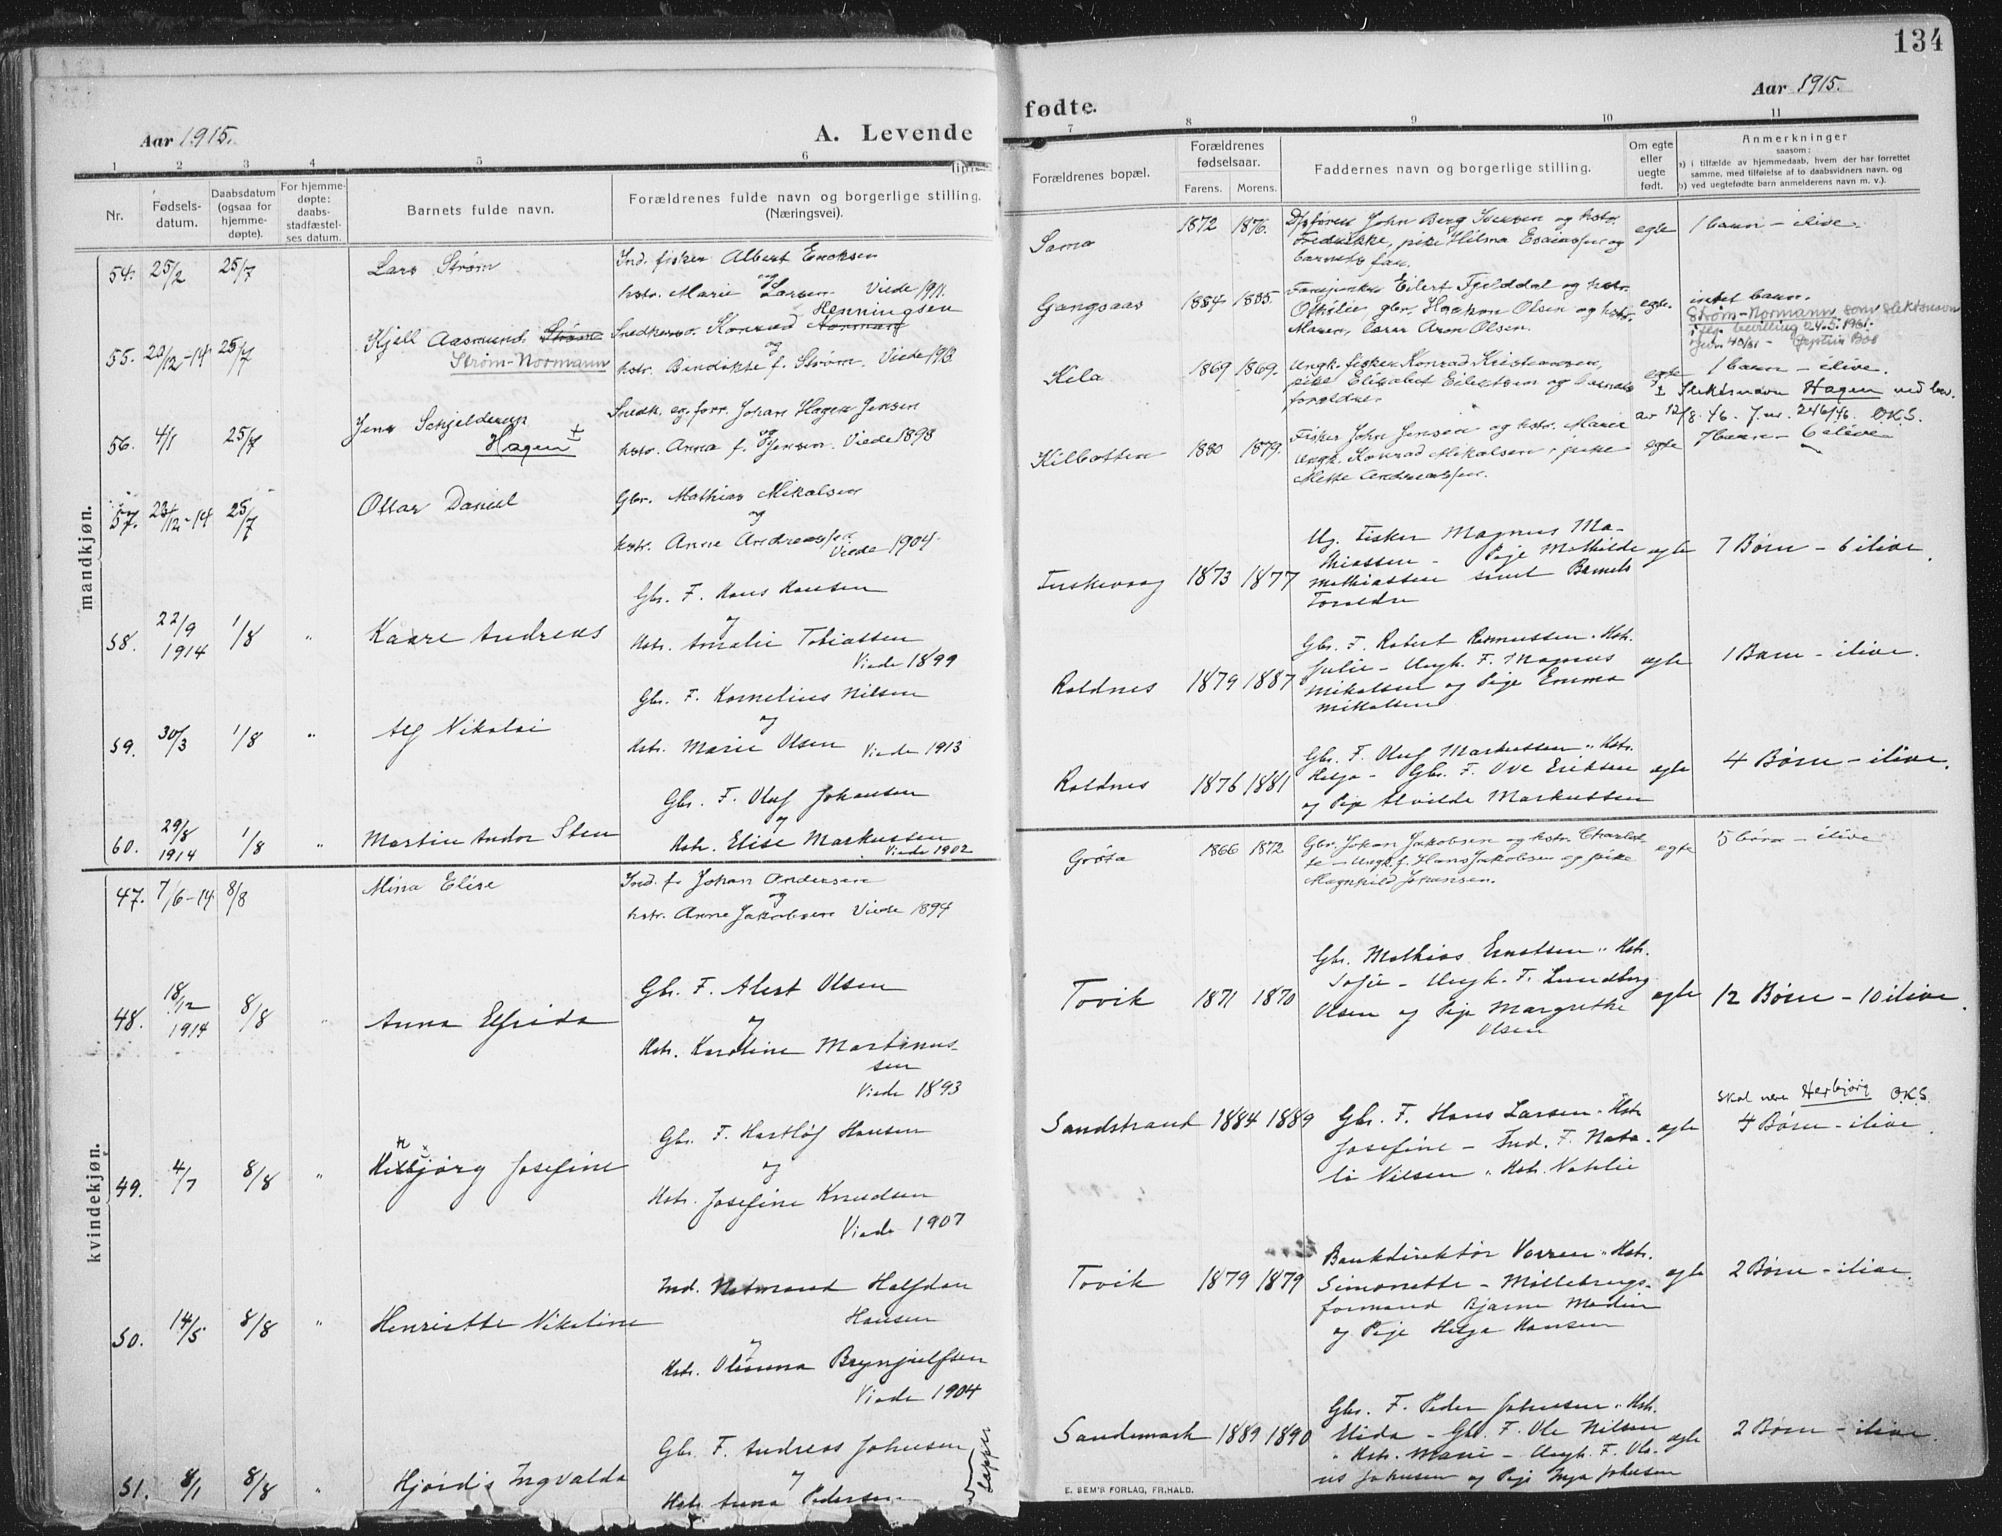 134
Aar 1915.
A. Levende
fødte.
Aar 1915.
1 2 3 4 5 6
7 8 9 10 11
Nr.
Fødsels-
datum.
Daabsdatum
(ogsaa for
hjemme-
døpte).
For hjemme-
døpte:
daabs-
stadfæstel-
ses datum.
Barnets fulde navn.
Forældrenes fulde navn og borgerlige stilling.
(Næringsvei).
Forældrenes bopæl.
Forældrenes
fødselsaar.
Farens. Morens.
Faddernes navn og borgerlige stilling.
Om egte
eller
uegte
født.
Anmerkninger
saasom:
a) i tilfælde av hjemmedaab, hvem der har forrettet
samme, med tilføielse af to daabsvidners navn, og
b) ved uegtefødte barn anmelderens navn m. v.).
mandkjøn.
54. 25/2 25/7 Lars Strøm
Ind. fisker Albert Enoksen
og
hstr. Marie Larsen Viede 1911.
Sama 1872 1876. John Berg Iversen og hstr.
Fredrikke, pike Hilma Esaiassen og
barnets far.
egte 1 barn - ilive.
55. 22/12-14 25/7 Kjell Aasmund Strøm
Strøm-Normann
Henningsen
Snedker Konrad Norman
og
hstr. Bendikte f. Strøm. Viede 1913
Gangsaas 1884 1885. Eilert Fjelddal og hstr.
Othilie, gbr. Haakon Olsen og hstr.
Maren, lærer Aron Olsen.
egte. intet barn.
Strøm-Normann som slektsnavn
iflg. bevilling 24.5.1961.
56. 4/1 25/7 Jens Schjelderup
Hagen ±
Snedk. og forr. Johan Hagen Jensen
og
hstr. Anna f. Jensen. Viede 1898
Kila 1869 1869. Ungk. fisker Konrad Kristiansen,
pike Elisabet Eilertsen og barnets
forældre.
egte 1 barn - ilive.
± Slektsnavn Hagen ved bev.
av 12/8.46. J.nr. 246/46. O.K.S.
57. 23/12-14 25/7 Ottar Daniel
Gbr. Mathias Mikalsen
og
hstr. Anne Andreassen
Viede 1904.
Kilbotten 1880 1879. Fisker John Jensen og hstr. Marie
Ungk. Konrad Mikalsen, pike
Mette Andreassen.
egte 7 barn - 6 ilive
58. 22/9 1914 1/8 " Kaare Andreas
Gbr. F. Hans Hansen
og
Hstr. Amalie Tobiassen
Viede 1899
Tuskevaag 1873 1877 Ug. Fisker Magnus Ma-
thiassen - Pije Mathilde
Mathiassen samt Barnets
Foreldre
egte 7 Børn - 6 ilive.
59. 30/3 1/8 " Alf Nikolai
Gbr. F. Kornelius Nilsen
og
Hstr. Marie Olsen Viede 1913
Roldnes 1879 1887 Gbr. F. Robert Rasmussen " Hstr.
Julie - Ungk. F. Magnus
Mikalsen og Pije Emma
Mikalsen
egte 1 Barn - ilive.
60. 29/8 1914 1/8 " Martin Andor Sten
Gbr. F. Oluf Johansen
og
Hstr. Elise Markussen
Viede 1902
Roldnes 1876 1881 Gbr. F. Oluf Markussen " Hstr.
Helga - Gbr. F. Ove Eriksen
og Pije Alvilde Markussen
egte 4 Børn - ilive.
kvindekjøn.
47. 7/6-14 8/8 Mina Elise
Ind. f. Johan Andersen
og
hstr. Anne Jakobsen Viede 1894
Grøta 1866 1872 Gbr. Johan Jakobsen og hstr. Charlot-
te - Ungk. f. Hans Jakobsen og pike
Magnhild Johansen.
egte 5 børn - ilive
48. 18/12 1914 8/8 " Anna Elfrida
Gbr. F. Alert Olsen
og
Hstr. Karoline Martinus-
sen
Viede 1893
Tovik 1871 1870 Gbr. Mathias Ernstsen " Hstr.
Sofie - Ungk. F. Lundberg
Olsen og Pije Margrethe
Olsen
egte 12 Børn - 10 ilive.
49. 4/7 8/8 " Herbjørg Josefine
Gbr. F. Hartløf Hansen
og
Hstr. Josefine Knudsen
Viede 1907
Sandstrand 1884 1889 Gbr. F. Hans Larsen " Hstr
Josefine - Ind. F. Nata-
li Nilsen " Hstr. Nahlie
egte Skal være Herbjørg O.K.S.
4 Børn - ilive.
50. 14/5. 8/8 " Henriette Nikoline
Ind. Notmand Halfdan
Hansen
og
Hstr. Olianna Brynjulfsen
Viede 1904
Tovik 1879 1879 Bankdirektør Vorren " Hstr.
Simonette - Møllebrugs-
formand Bjarne Modin
og Pije Helga Hansen
egte 2 Børn - ilive.
51. 8/1 8/8 " Hjørdis Ingvalda
Gbr. F. Andreas Johnsen
og
Hstr. Anna Pedersen
Lapper
Sandemark 1889 1890 Gbr. F. Peder Johnsen " Hstr.
Alida - Gbr. F. Ole Nilsen
" Hstr. Marie - Ungk. F. Ole-
us Johnsen og Pije Inga Johnsen
egte 2 Børn - ilive.
E. SEM'S FORLAG, FR.HALD.